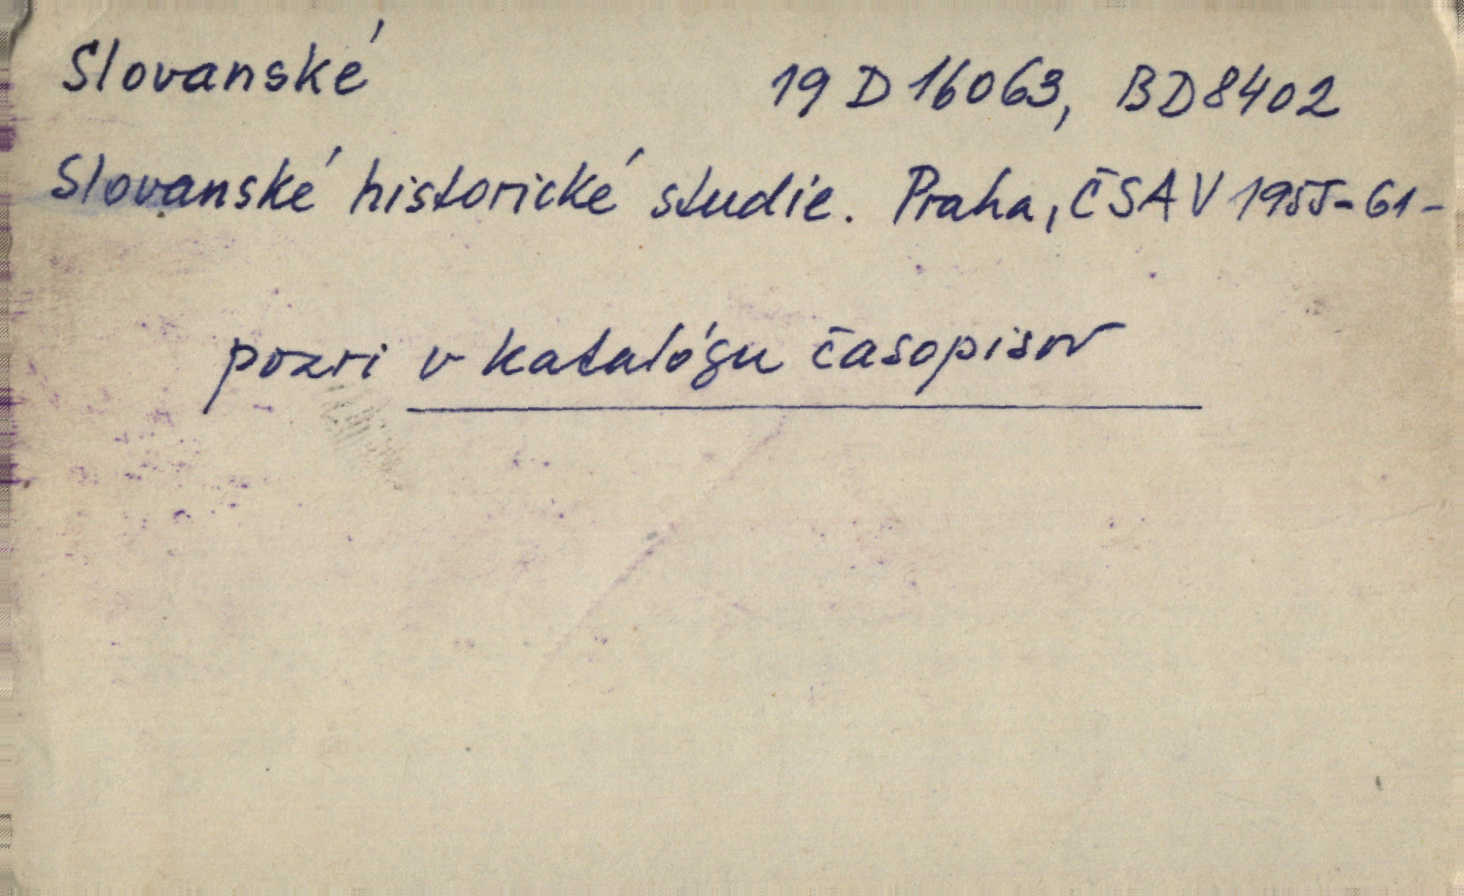 Slovanské 19 D 16063, BD 8402
Slovanské historické studie. Praha, ČSAV 1955-61-
pozri v katalógu časopisov